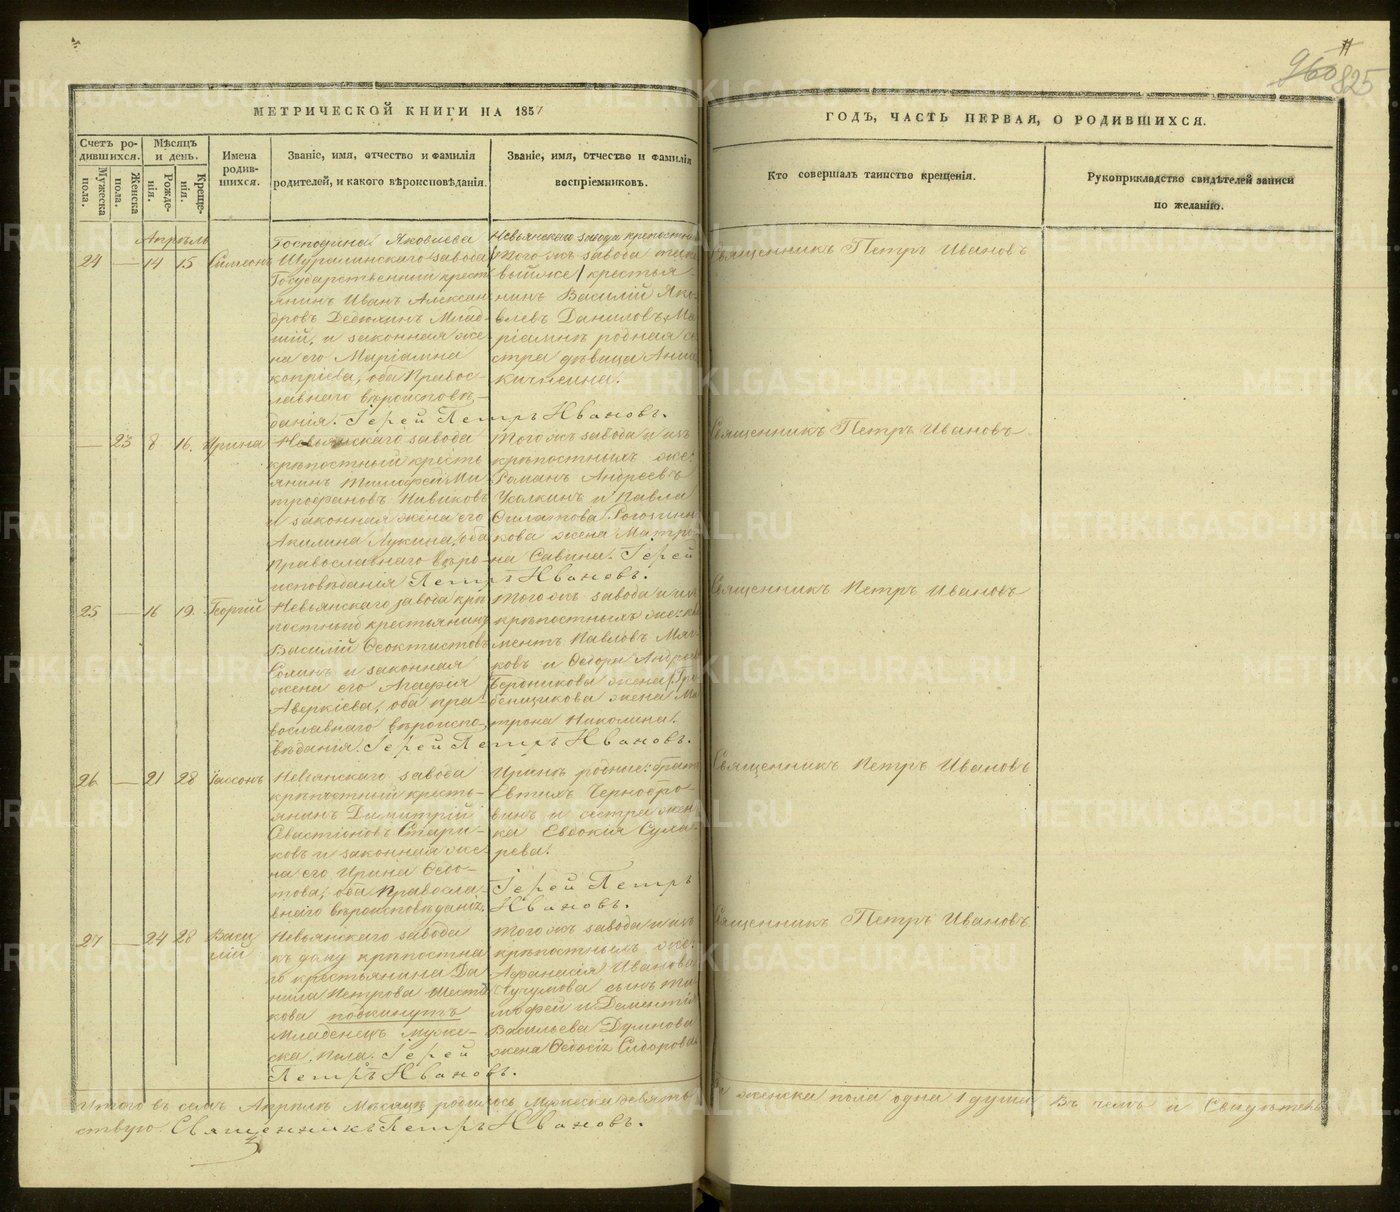 11
960 825
МЕТРИЧЕСКОЙ КНИГИ НА 1857
ГОДЪ, ЧАСТЬ ПЕРВАЯ, О РОДИВШИХСЯ.
Счетъ родившихся.
Мужеска пола.
Женска пола.
Мѣсяцъ и день.
Рожденія.
Крещенія.
Имена родившихся.
Званіе, имя, отчество и фамилія
родителей, и какого вѣроисповѣданія.
Званіе, имя, отчество и фамилія
воспріемниковъ.
Кто совершалъ таинство крещенія.
Рукоприкладство свидѣтелей записи
по желанію.
Апрѣль
24 — 14 15 Симеонъ
Господина Яковлева
Шуралинскаго завода
Государственный крест-
янинъ Иванъ Алексан-
дровъ Дедюхинъ Млад-
шій, и законная же-
на его Маріамна
оба Правос-
лавнаго вѣроисповѣ-
данія. Іерей Петръ Ивановъ.
Невьянскаго завода крѣпостный
Того жъ завода
крестья-
нинъ Василій Яко-
влевъ Даниловъ
родная се-
стра дѣвица Анна
Священникъ Петръ Ивановъ
— 23 8 16. Ирина
Невьянскаго завода
крѣпостный кресть-
янинъ Тимофей Ми-
трофановъ Новиковъ
и законная жена его
Акилина Лукина, оба
Православнаго вѣро-
исповѣданія Петръ Ивановъ.
Того жъ завода и изъ
крѣпостныхъ же:
Романъ Андреевъ
и Павла
Филатова
жена Матро-
на Савина. Іерей
Священникъ Петръ Ивановъ
25 — 16 19. Георгій
Невьянскаго завода крѣ-
постный крестьянинъ
Василій Феоктистовъ
и законная
жена его Агафія
Аверкіева, оба пра-
вославнаго вѣроиспо-
вѣданія. Іерей Петръ Ивановъ.
Того жъ завода и изъ
крѣпостныхъ же: Кли-
ментъ Павловъ Мяг-
ковъ и Федора Андреева
Бердникова жена
жена Ма-
трона Николина.
Священникъ Петръ Ивановъ
26 — 21 28 Іассонъ
Невьянскаго завода
крѣпостный кресть-
янинъ Димитрій
Севастіоновъ Стари-
ковъ и законная же-
на его Ирина Федо-
това, оба Правосла-
внаго вѣроисповѣданія.
Иринѣ родные: братъ
Евтихъ Черноб-
и сестра жен-
ка Евдокія Сука-
рева.
Іерей Петръ
Ивановъ.
Священникъ Петръ Ивановъ
27 — 24 28 Васи-
лій
Невьянскаго завода
къ дому крѣпостна-
го крестьянина Да-
нила Петрова Шеста-
кова подкинутъ
Младенецъ Муже-
ска пола. Іерей
Петръ Ивановъ.
Того жъ завода и изъ
крѣпостныхъ же:
Афанасія Иванова
сынъ Ти-
мофей и Дементія
Васильева Думнова
жена Федосія Сидорова.
Священникъ Петръ Ивановъ.
Итого въ семъ Апрѣлѣ Мѣсяцѣ родилось Мужеска девять
и женска пола одна 1 душа Въ чемъ и Свидѣтель-
ствую Священникъ Петръ Ивановъ.